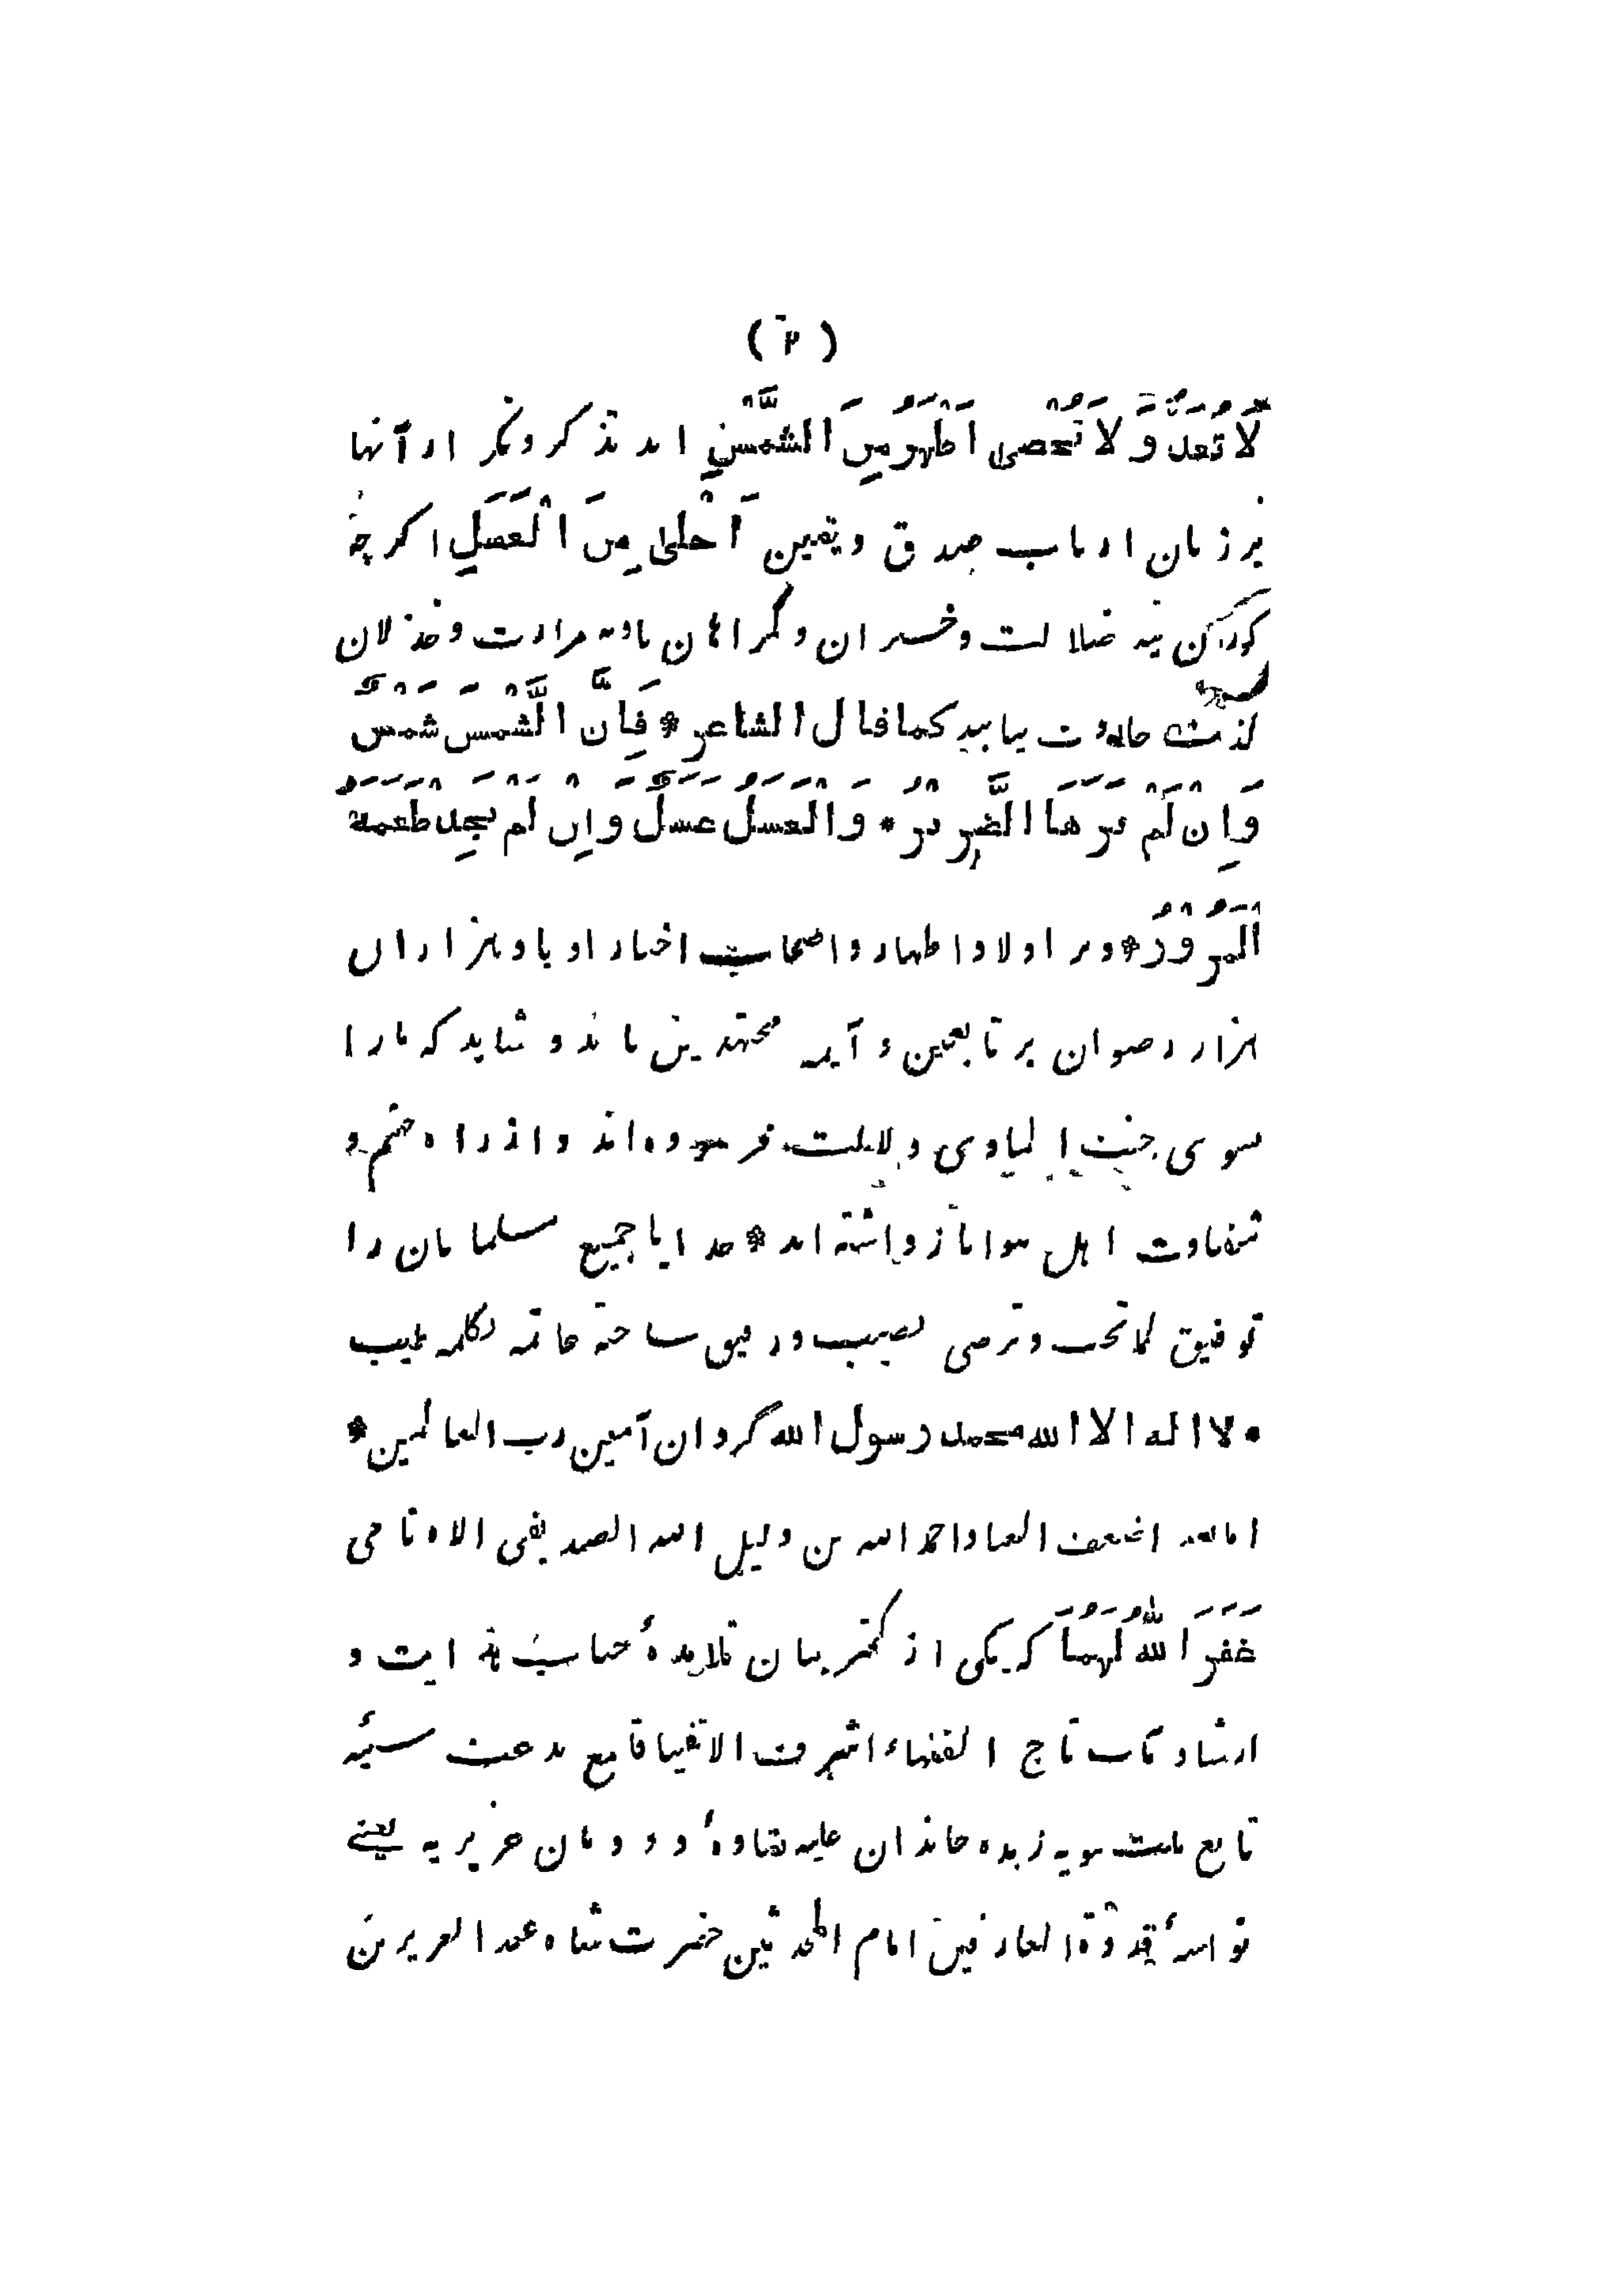 ( ۲ )
لَا تُعَدُّ وَلَا تُحْصَىٰ اَظْهَرُ مِنَ الشَّمْسِ اند تذکر و فکر از آنها
بر زبان ارباب صدق و یقین اَحْلیٰ مِنَ الْعَسَلِ اگرچه
ضلالت و خسران و گمراهان بادیه مرادت و خذلان
لذت حلاوت نیابید کما قال الشاعر * فَاِنَّ الشَّمْسَ شَمْسٌ
وَاِنْ لَمْ تَرَهَا الضَّرِيْرُ * وَالْعَسَلُ عَسَلٌ وَاِنْ لَمْ يَجِدْ طَعْمَهُ
الْمَرُوْرُ * و بر اولاد اطهار و اصحاب اخیار او باد هزاران
هزار رضوان بر تابعین و آیمه مجتهدین باد و شاید که مارا
سوی جنت الماوی دلالت فرموده اند و از راه جهنم و
شقاوت اهل هوا باز داشته اند * خدایا جمیع مسلمانان را
توفیق لما تحب و ترضی نصیب و رفیق ساخته خاتمه بکلمه طیب
• لا اله الا الله محمد رسول الله گردان آمین رب العالمین *
اما بعد اضعف العباد احمد الله بن دلیل الله الصدیقی الانامی
غَفَرَ اللهُ لَهُمَا که یکی از کمترینان تلامذهٔ جناب هدایت و
ارشاد مآب تاج الفقهاء اشرف الاتقیا قامع بدعت سیئه
تابع ملت سویه زبده خاندان علیه نقاوهٔ دودمان عزیزیه یعنے
نواسهٔ قدوة العارفین امام المحدثین حضرت شاه عبد العزیز بن